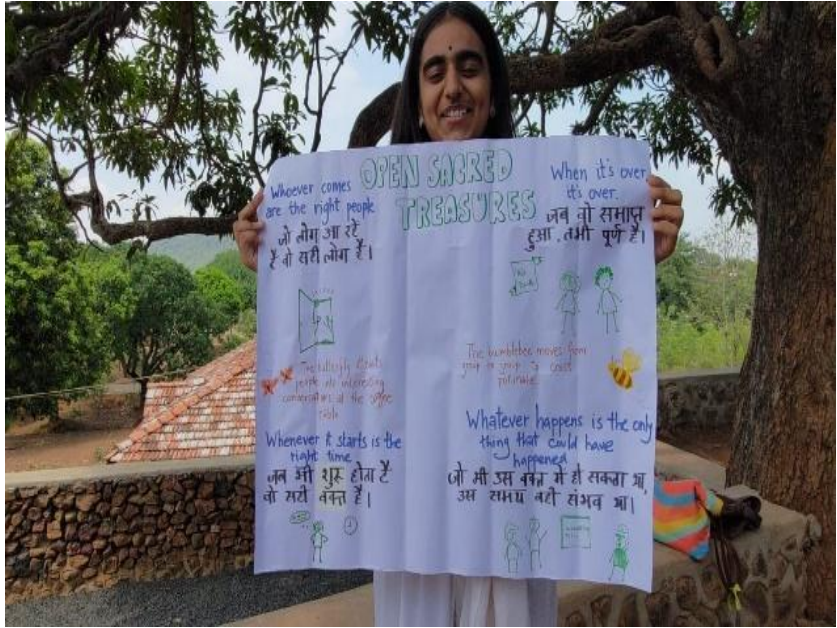 OPEN SACRED
TREASURES
Whoever comes
are the right people
जो लोग आ रहे
है वो सही लोग हैं।
When it's over,
it's over.
जब वो समाप्त
हुआ, तभी पूर्ण है।
The butterfly
people
conversations at the coffee
table
The bumblebee moves from
group to group to cross
pollinate
Whenever it starts is the
right time
जब भी शुरू होता है
वो सही वक्त है।
Whatever happens is the only
thing that could have
happened
जो भी उस वक्त में हो सकता था,
उस समय वही संभव था।